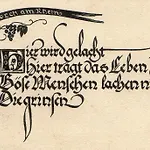 rch am Rhein
Hier wird gelacht
hier trägt das Leben
Böse Menschen lachen n
Die grinsen